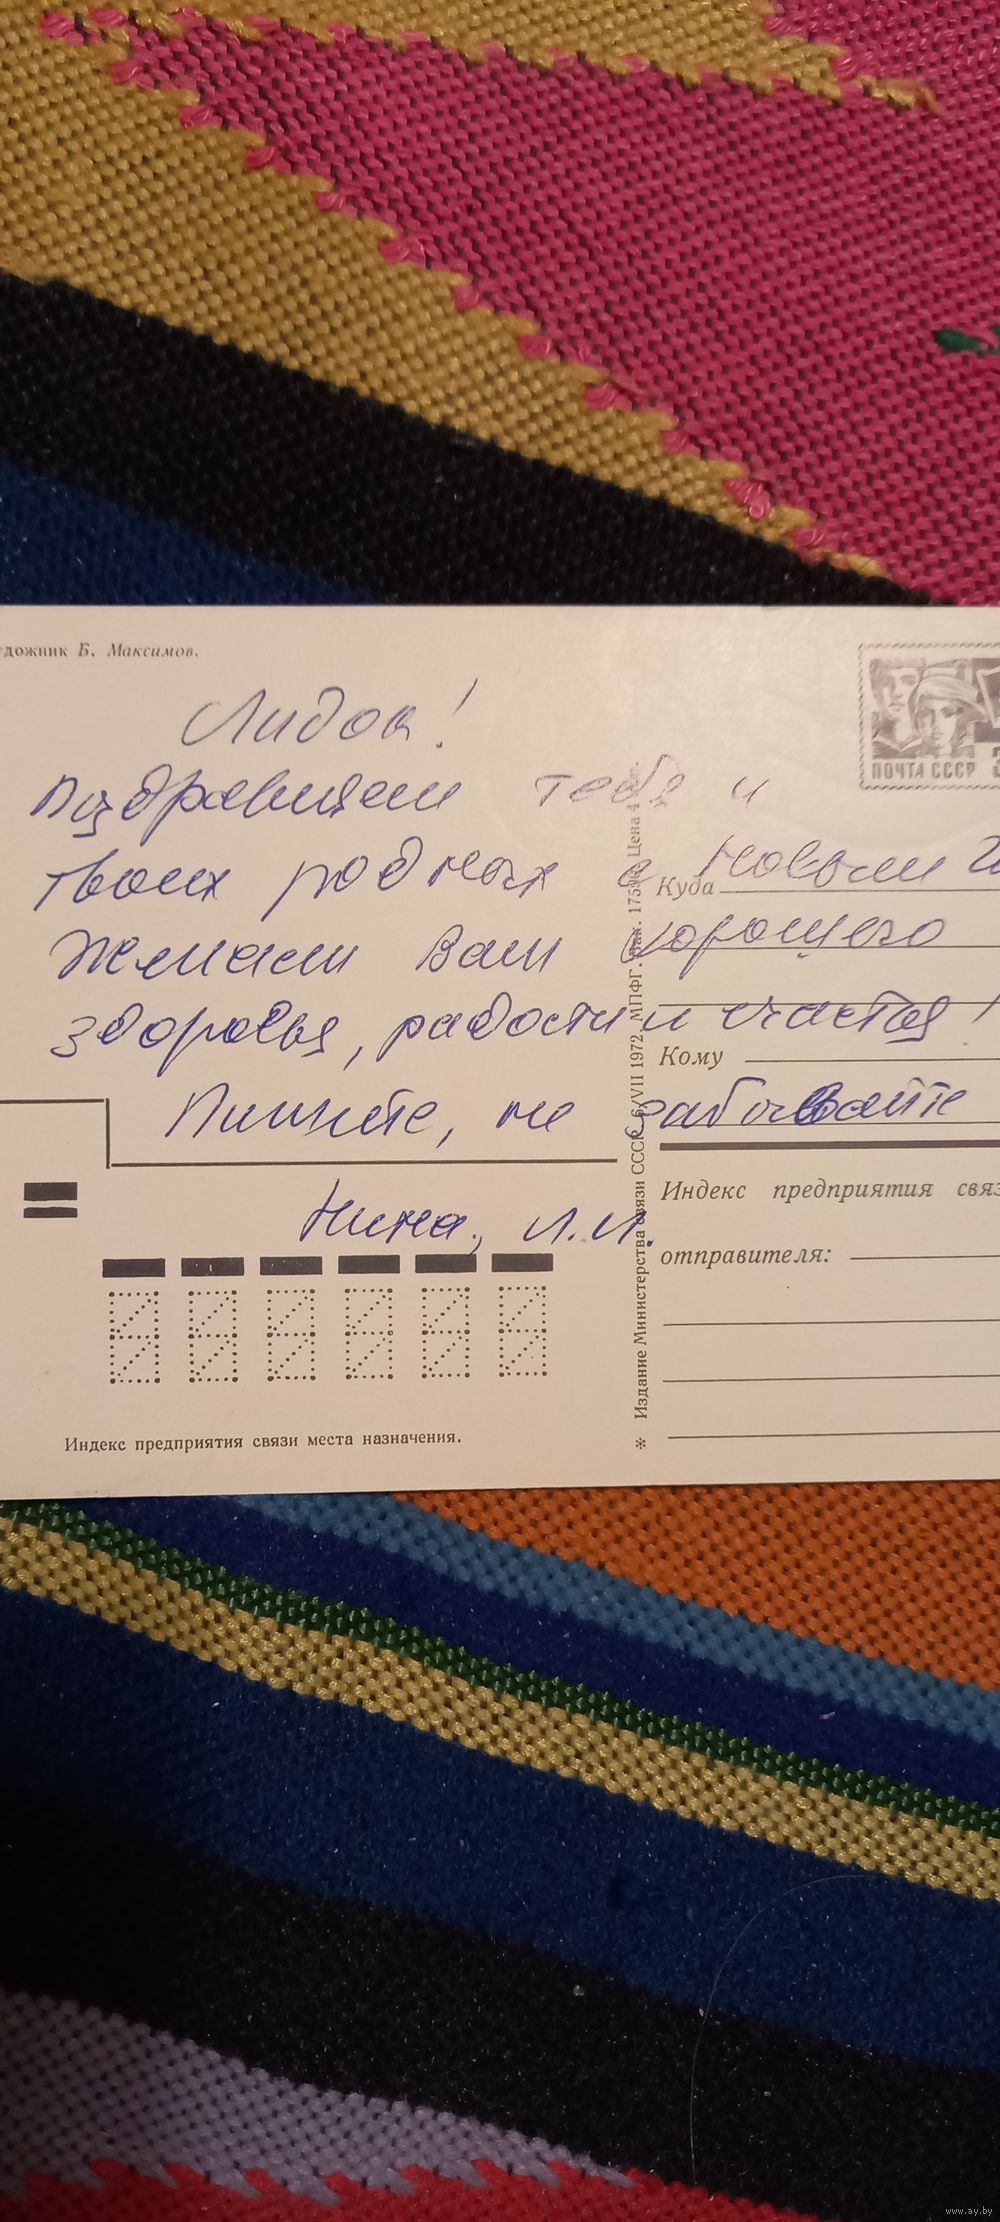 удожник Б. Максимов.
ПОЧТА СССР
Лидок!
Пздравляем тебя и
твоих родных с Новым
Желаем Вам хорошего
здоровья, радости и счастья!
Пишите, не забывайте
Нина, Л.И.
Куда
Кому
Индекс предприятия связ
отправителя:
Индекс предприятия связи места назначения.
* Издание Министерства связи СССР. 6/VII 1972. МПФГ. Цена 4
www.ay.by